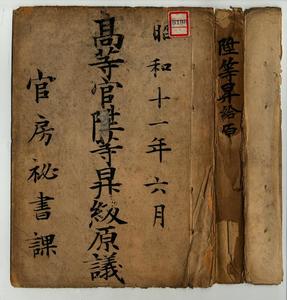 昭和十一年六月
高等官陞等昇級原議
官房祕書課
陞等昇給